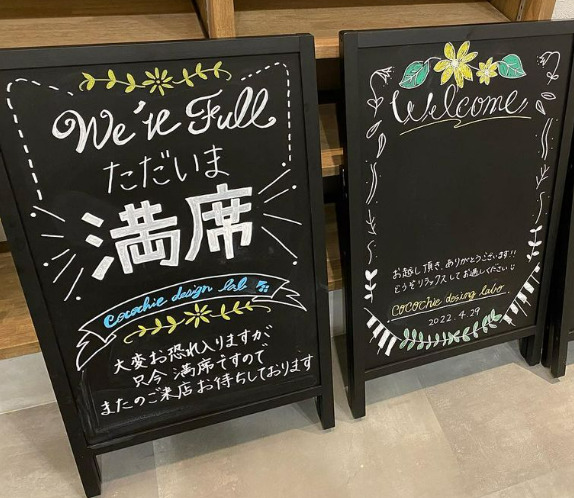 We're Full
ただいま
満席
cocochie design lab
大変お恐れ入りますが
只今 満席ですので
またのご来店お待ちしております
Welcome
お越し頂き、ありがとうございます!!
どうぞリラックスしてお過しください
cocochie desing labo
2022.4.29